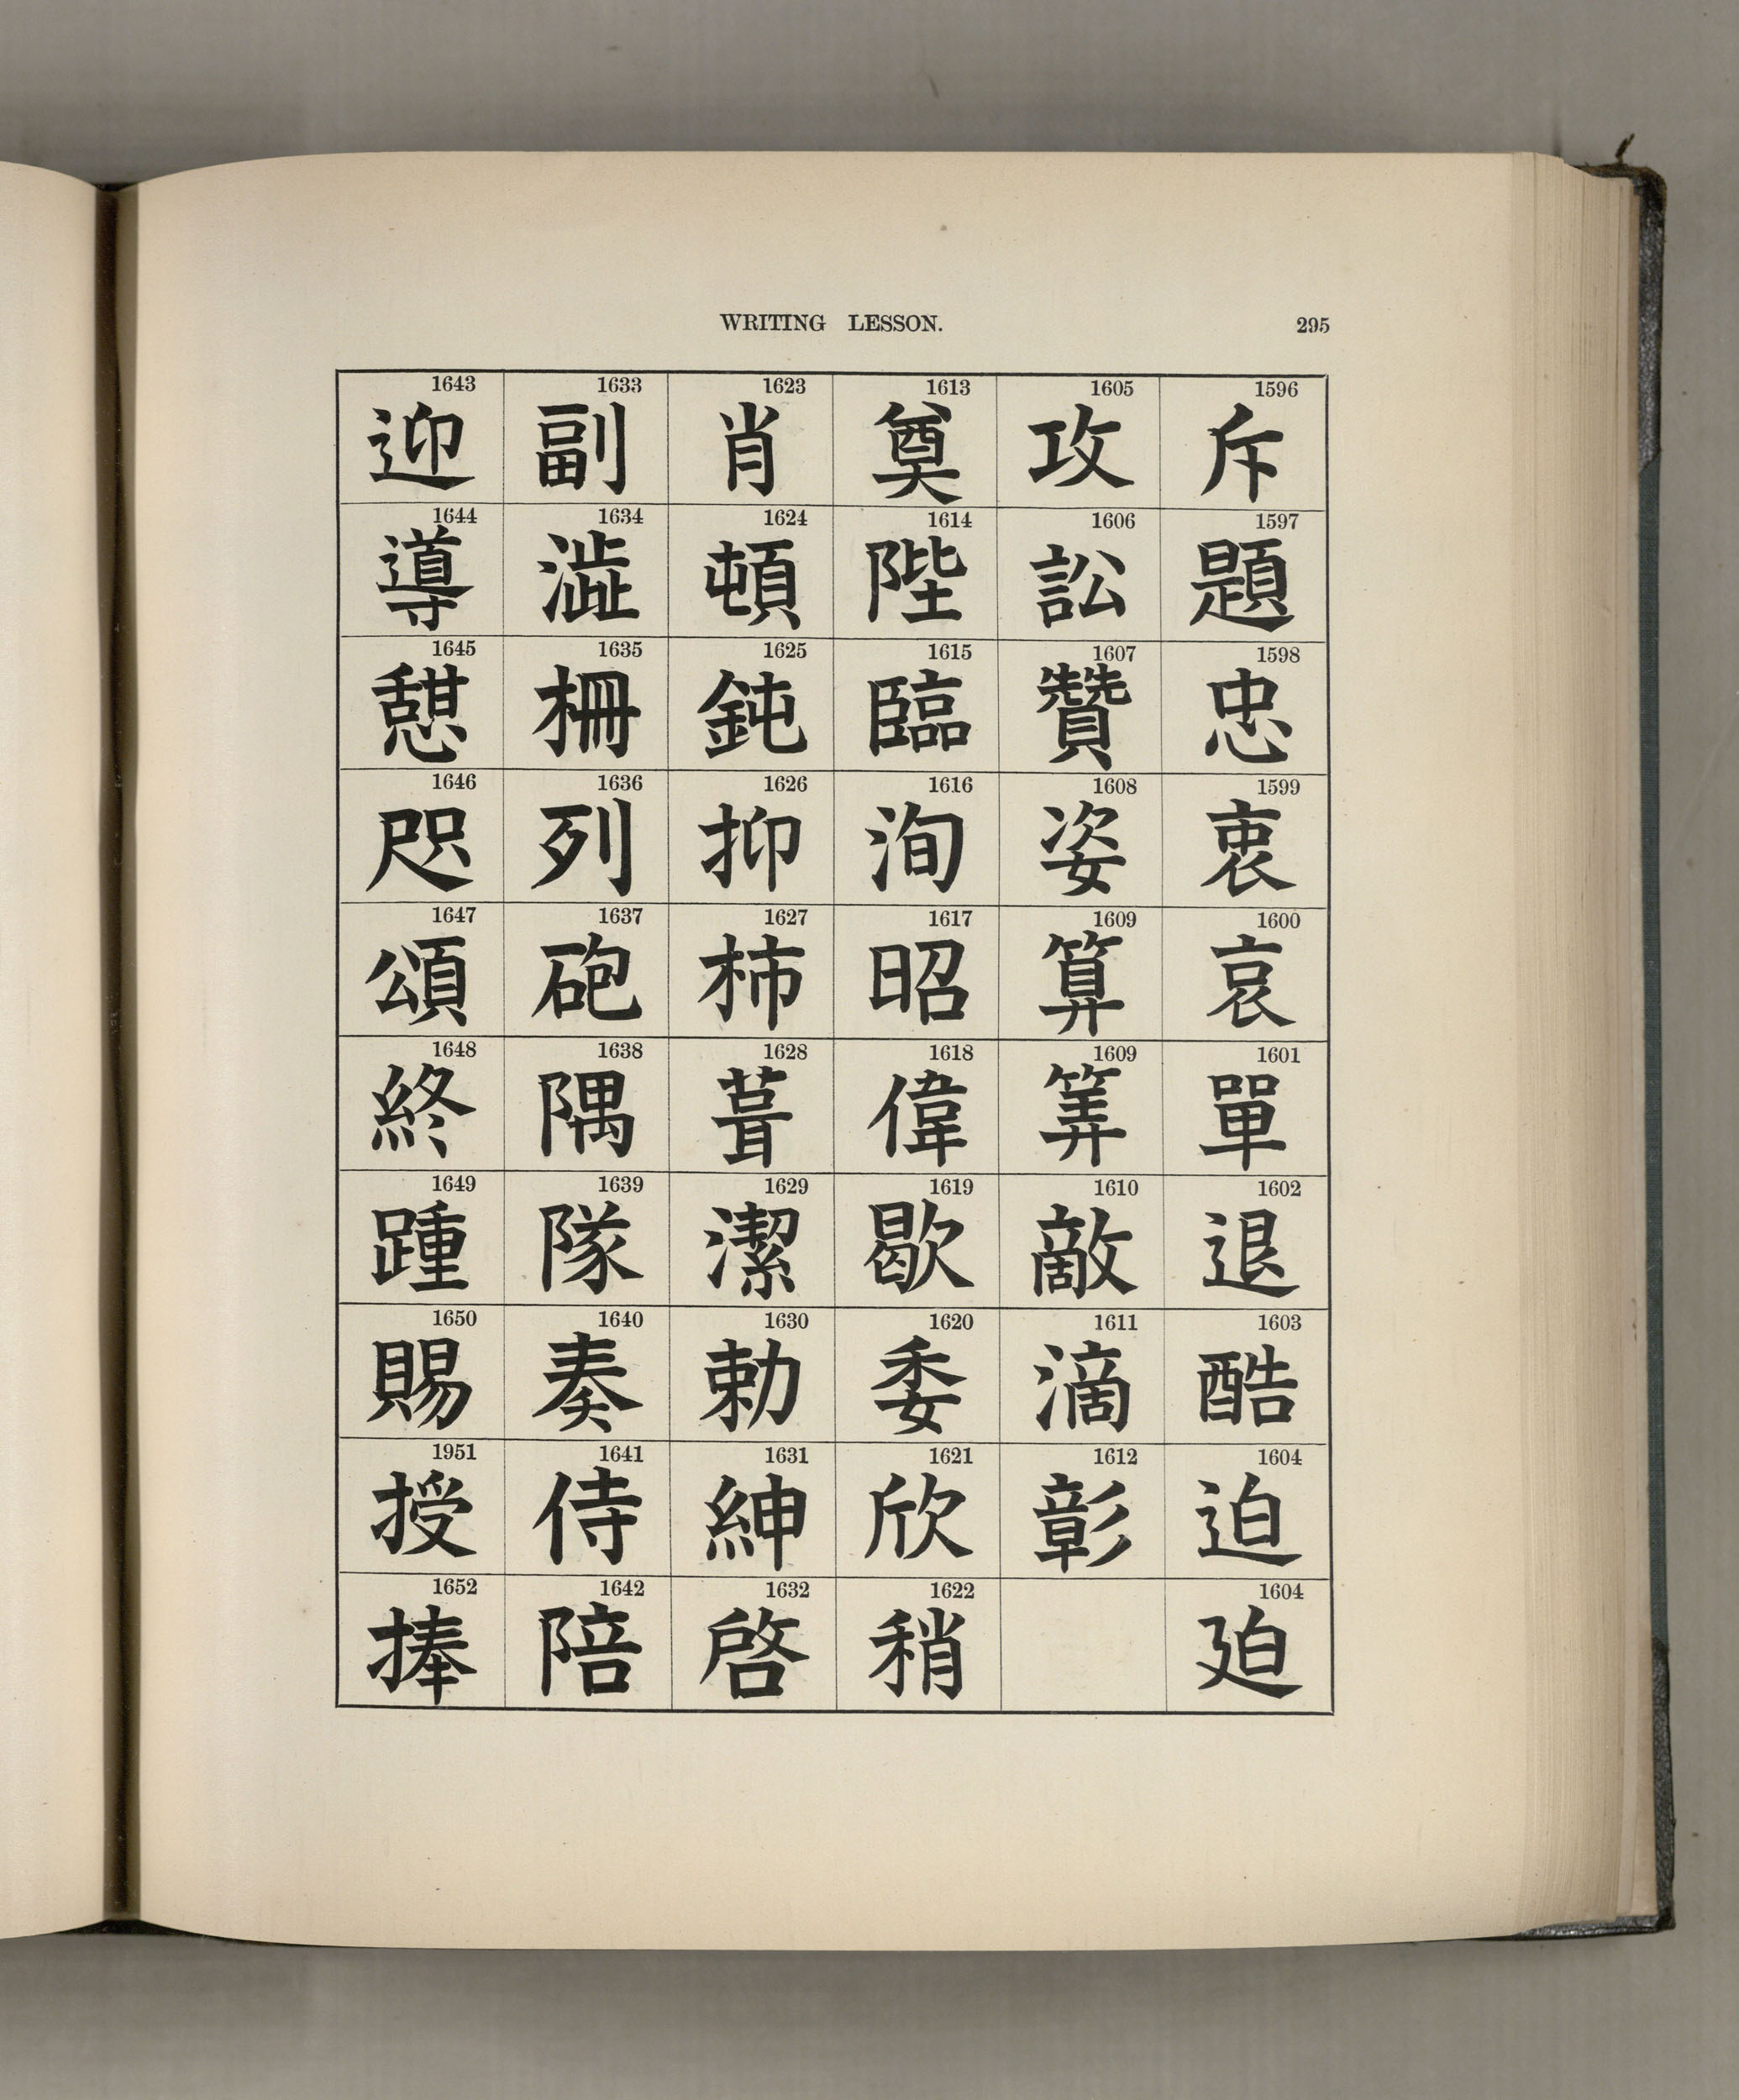 WRITING LESSON. 295
1596 斥
1597 題
1598 忠
1599 衷
1600 哀
1601 單
1602 退
1603 酷
1604 迫
1604 廹
1605 攻
1606 訟
1607 贊
1608 姿
1609 算
1609 筭
1610 敵
1611 滴
1612 彰
1613 奠
1614 陛
1615 臨
1616 洵
1617 昭
1618 偉
1619 歇
1620 委
1621 欣
1622 稍
1623 肖
1624 頓
1625 鈍
1626 抑
1627 柿
1628 葺
1629 潔
1630 勅
1631 紳
1632 啓
1633 副
1634 澁
1635 柵
1636 列
1637 砲
1638 隅
1639 隊
1640 奏
1641 侍
1642 陪
1643 迎
1644 導
1645 憇
1646 咫
1647 頌
1648 終
1649 踵
1650 賜
1951 授
1652 捧